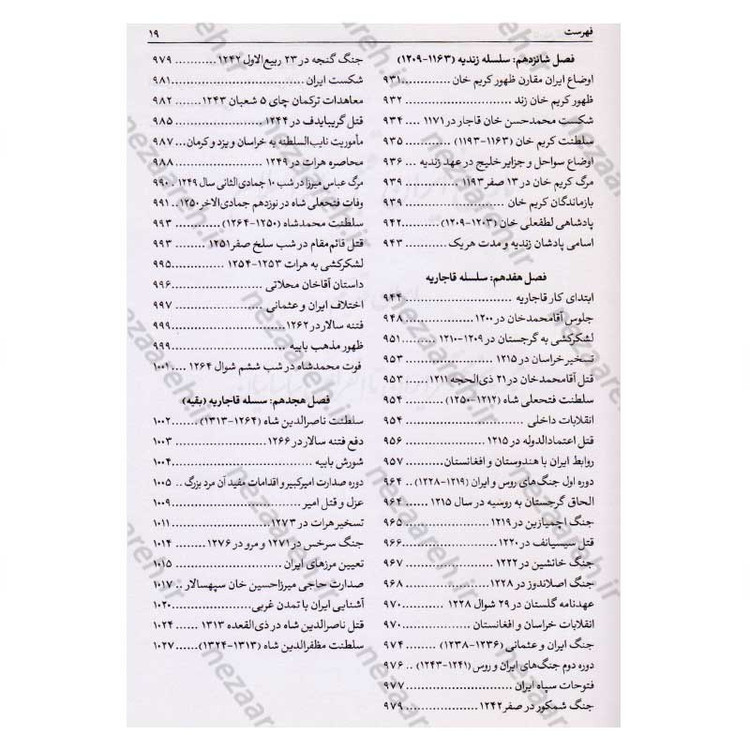 فهرست
۱۹
فصل شانزدهم: سلسله زندیه (۱۱۶۳-۱۲۰۹)
اوضاع ایران مقارن ظهور کریم خان ..... ۹۳۱
ظهور کریم خان زند ..... ۹۳۲
شکست محمدحسن خان قاجار در ۱۱۷۱ ..... ۹۳۴
سلطنت کریم خان (۱۱۶۳-۱۱۹۳) ..... ۹۳۵
اوضاع سواحل و جزایر خلیج در عهد زندیه ... ۹۳۶
مرگ کریم خان در ۱۳ صفر ۱۱۹۳ ..... ۹۳۹
بازماندگان کریم خان ..... ۹۳۹
پادشاهی لطفعلی خان (۱۲۰۳-۱۲۰۹) ..... ۹۴۲
اسامی پادشان زندیه و مدت هریک ..... ۹۴۳
فصل هفدهم: سلسله قاجاریه
ابتدای کار قاجاریه ..... ۹۴۴
جلوس آقامحمدخان در ۱۲۰۰ ..... ۹۴۸
لشکرکشی به گرجستان در ۱۲۰۹-۱۲۱۰ ..... ۹۵۱
تسخیر خراسان در ۱۲۱۵ ..... ۹۵۳
قتل آقامحمدخان در ۲۱ ذی‌الحجه ۱۲۱۱ ... ۹۵۳
سلطنت فتحعلی شاه (۱۲۱۲-۱۲۵۰) ..... ۹۵۴
انقلابات داخلی ..... ۹۵۴
قتل اعتمادالدوله در ۱۲۱۵ ..... ۹۵۶
روابط ایران با هندوستان و افغانستان ..... ۹۵۷
دوره اول جنگ‌های روس و ایران (۱۲۱۹-۱۲۲۸) .. ۹۶۴
الحاق گرجستان به روسیه در سال ۱۲۱۵ .... ۹۶۴
جنگ اچمیازین در ۱۲۱۹ ..... ۹۶۵
قتل سیسیانف در ۱۲۲۰ ..... ۹۶۶
جنگ خانشین در ۱۲۲۲ ..... ۹۶۷
جنگ اصلاندوز در ۱۲۲۸ ..... ۹۶۸
عهدنامه گلستان در ۲۹ شوال ۱۲۲۸ ..... ۹۷۰
انقلابات خراسان و افغانستان ..... ۹۷۰
جنگ ایران و عثمانی (۱۲۳۶-۱۲۳۸) .... ۹۷۴
دوره دوم جنگ‌های ایران و روس (۱۲۴۱-۱۲۴۳) .. ۹۷۶
فتوحات سپاه ایران ..... ۹۷۷
جنگ شمکور در صفر ۱۲۴۲ ..... ۹۷۹
جنگ گنجه در ۲۳ ربیع‌الاول ۱۲۴۲ ..... ۹۷۹
شکست ایران ..... ۹۸۱
معاهدات ترکمان چای ۵ شعبان ۱۲۴۳ ..... ۹۸۲
قتل گریبایدف در ۱۲۴۴ ..... ۹۸۵
مأموریت نایب‌السلطنه به خراسان و یزد و کرمان... ۹۸۷
محاصره هرات در ۱۲۴۹ ..... ۹۸۸
مرگ عباس میرزا در شب ۱۰ جمادی‌الثانی سال ۱۲۴۹ . ۹۹۰
وفات فتحعلی شاه در نوزدهم جمادی‌الاخر ۱۲۵۰.. ۹۹۱
سلطنت محمدشاه (۱۲۵۰-۱۲۶۴) ..... ۹۹۳
قتل قائم‌مقام در شب سلخ صفر ۱۲۵۱ ..... ۹۹۳
لشکرکشی به هرات ۱۲۵۳-۱۲۵۴ ..... ۹۹۵
داستان آقاخان محلاتی ..... ۹۹۶
اختلاف ایران و عثمانی ..... ۹۹۷
فتنه سالار در ۱۲۶۲ ..... ۹۹۹
ظهور مذهب بابیه ..... ۹۹۹
فوت محمدشاه در شب ششم شوال ۱۲۶۴ ... ۱۰۰۱
فصل هجدهم: سسله قاجاریه (بقیه)
سلطنت ناصرالدین شاه (۱۲۶۴-۱۳۱۳) ..... ۱۰۰۲
دفع فتنه سالار در ۱۲۶۶ ..... ۱۰۰۳
شورش بابیه ..... ۱۰۰۴
دوره صدارت امیرکبیر و اقدامات مفید آن مرد بزرگ .. ۱۰۰۵
عزل و قتل امیر ..... ۱۰۰۹
تسخیر هرات در ۱۲۷۳ ..... ۱۰۱۱
جنگ سرخس در ۱۲۷۱ و مرو در ۱۲۷۶ .... ۱۰۱۴
تعیین مرزهای ایران ..... ۱۰۱۵
صدارت حاجی میرزاحسین خان سپهسالار .. ۱۰۱۷
آشنایی ایران با تمدن غربی ..... ۱۰۲۰
قتل ناصرالدین شاه در ذی‌القعده ۱۳۱۳ .... ۱۰۲۴
سلطنت مظفرالدین شاه (۱۳۱۳-۱۳۲۴) ..... ۱۰۲۷
nezaareh.ir